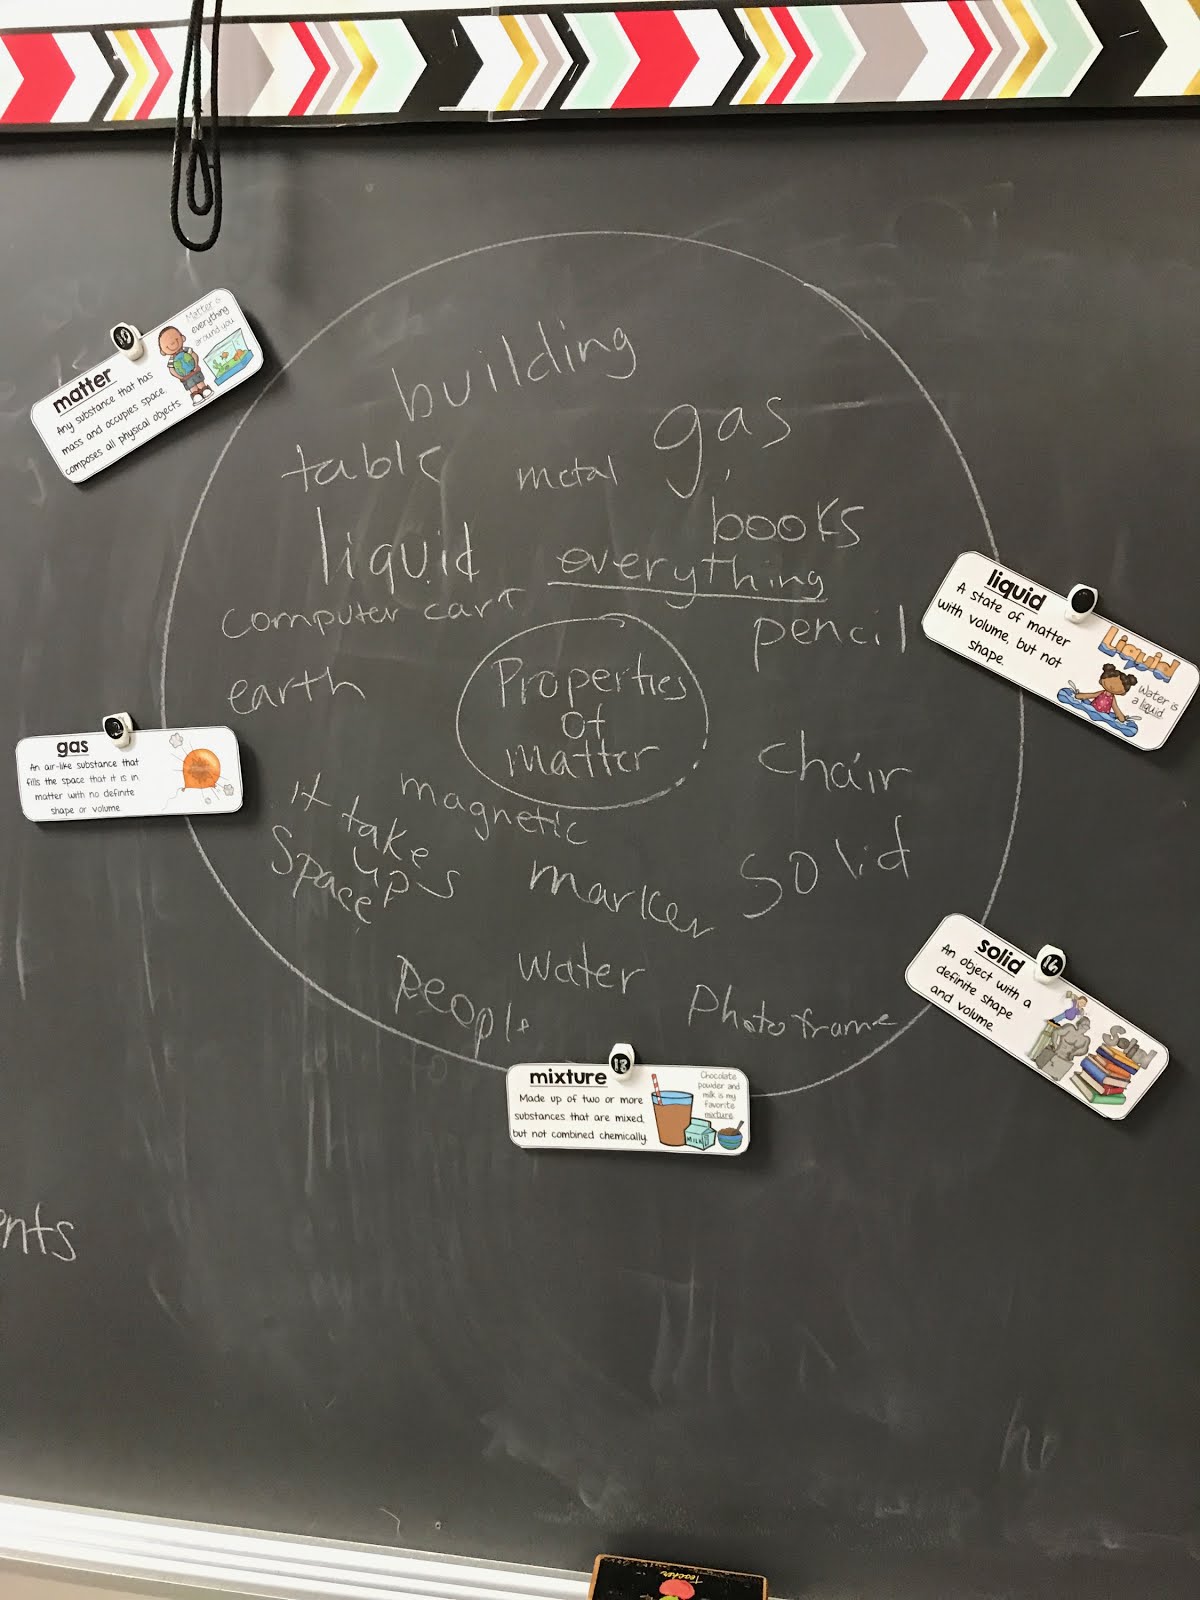 matter
Any substance that has
mass and occupies space.
composes all physical objects.
Matter is
everything
around you.
building
table
metal
gas
books
liquid
everything
computer cart
pencil
earth
Properties
of
matter
liquid
A state of matter
with volume, but not
shape.
Liquid
Water is
a liquid.
gas
An air-like substance that
fills the space that it is in.
matter with no definite
shape or volume.
chair
magnetic
it takes
up
space
marker
solid
People
water
Photo frame
solid
An object with a
definite shape
and volume.
Solid
mixture
Made up of two or more
substances that are mixed,
but not combined chemically.
Chocolate
powder and
milk is my
favorite
mixture
MILK
13
16
ents
Teacher